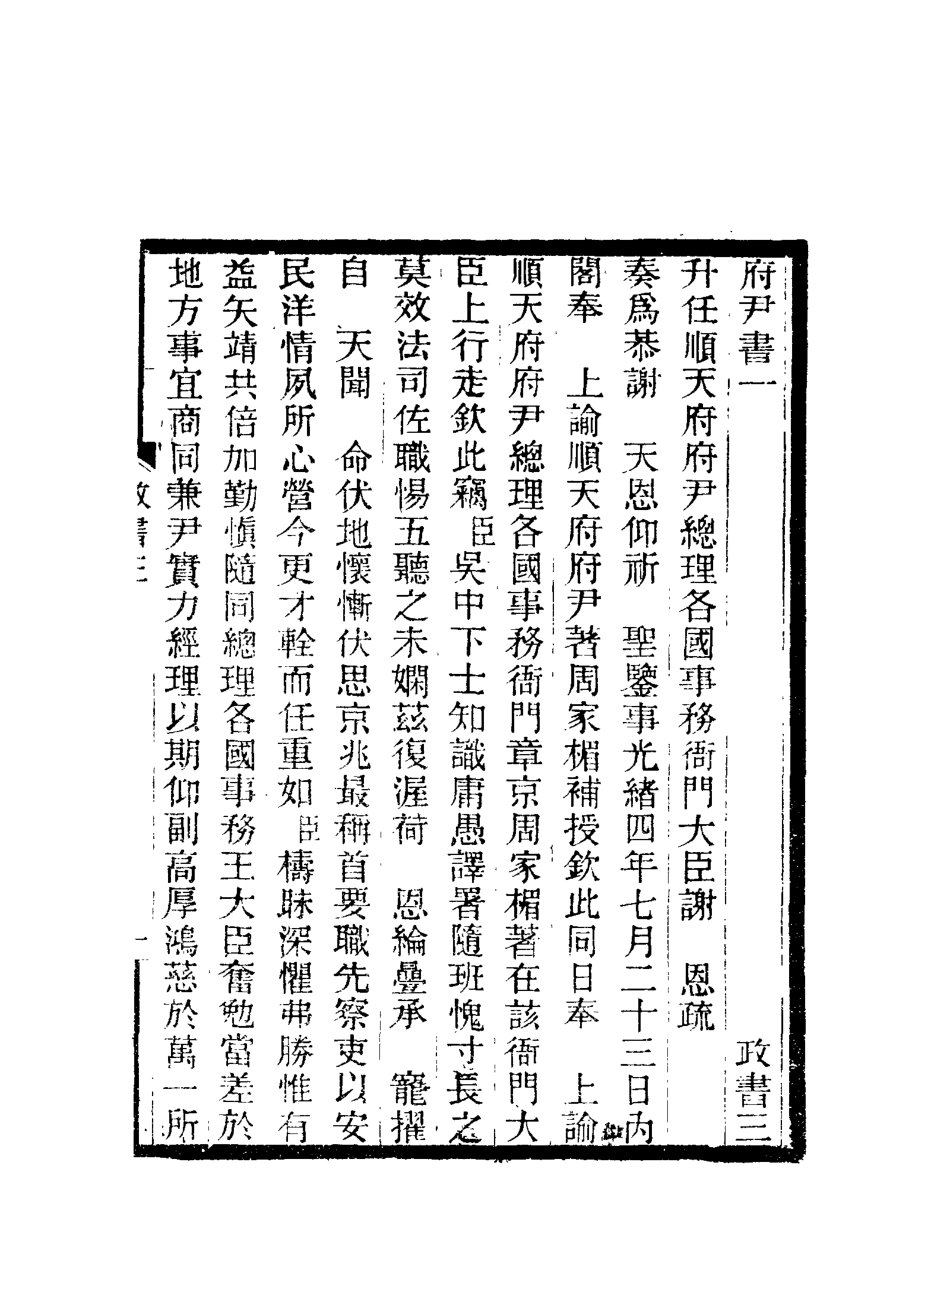 府尹書一　政書三
升任順天府府尹總理各國事務衙門大臣謝　恩疏
奏爲恭謝　天恩仰祈　聖鑒事光緒四年七月二十三日內
閣奉　上諭順天府府尹著周家楣補授欽此同日奉　上諭
順天府府尹總理各國事務衙門章京周家楣著在該衙門大
臣上行走欽此竊臣吳中下士知識庸愚譯署隨班愧寸長之
莫效法司佐職惕五聽之未嫻茲復渥荷　恩綸疊承　寵擢
自　天聞　命伏地懷慚伏思京兆最稱首要職先察吏以安
民洋情夙所心營今更才輇而任重如臣檮昧深懼弗勝惟有
益矢靖共倍加勤慎隨同總理各國事務王大臣奮勉當差於
地方事宜商同兼尹實力經理以期仰副高厚鴻慈於萬一所
政書三
一